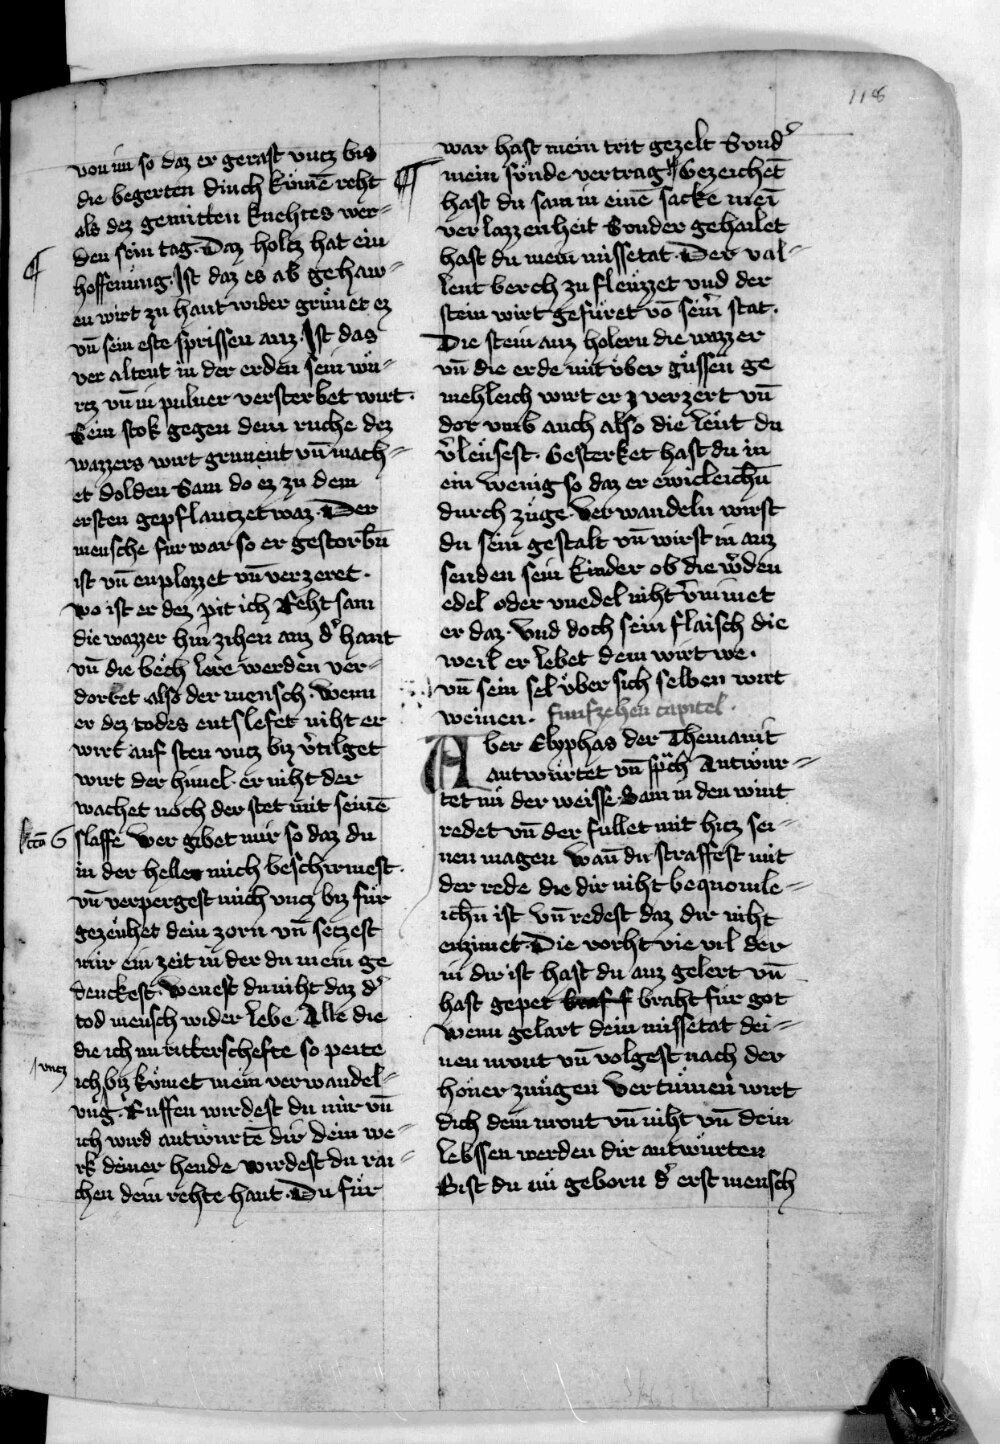 118
von im so daz er gerast vncz bis
die begerten dinch kömē reht
als dez gemitten knehtes wer-
den sein tag. Daz holcz hat ein
hoffenūng. Ist daz es ab gehaw-
en wirt zu hant wider grünet ez
vn̄ sein este sprissen auz. Ist das
ver altent in der erden sein wu-
rcz vn̄ in puluer versterbet wirt.
Sein stok gegen dem ruche dez
wazzers wirt grunent vn̄ mach-
et dolden Sam do ez zu dem
ersten gepflanczet waz. Der
mensche fur war so er gestorbn̄
ist vn̄ enplozzet vn̄ verzeret.
wo ist er dez pit ich Reht sam
die wazzer hin zihen auz d' hant
vn̄ die bech lere werden ver-
dorret also der mensch. Wenn
er dez todes entslefet niht er
wirt auf sten vncz biz v'tilget
wirt der himel. er niht der
wachet noch der stet mit seinē
slaffe Wer gibet mir so daz du
in der helle mich beschirmest.
vn̄ verpergest mich vncz biz für
gezeuhet dein zorn vn̄ seczest
mir ein zeit in der du mein ge
denckest. Wenest du niht daz d'
tod mensch wider lebe. Alle die
die ich nu ritterschefte so peite
vncz
ich biz kömet mein verwandel-
vng. Ruffen wirdest du mir vn̄
ich wird antwurtē dir dem we-
rk deiner hende wirdest du rai-
chen dein rehte hant. Du für
war hast mein trit gezelt Sund'
mein sünde vertrag Gezeichēt
hast du sam in einē sacke mei
verlazzenheit Sunder gehailet
hast du mein missetat. Der val-
lent berch zu fleuzzet vnd der
stein wirt gefüret vō sein' stat.
Die stein auz holern die wazzer
vn̄ die erde mit über güssen ge
mehleich wirt er verzert vn̄
dor vmb auch also die leüt du
v'leüsest. Gesterket hast du in
ein wenig so daz er ewicleichn̄
durch züge Verwandeln wirst
du sein gestalt vn̄ wirst in auz
senden sein kinder ob die w'den
edel oder vnedel niht v'nimet
er daz. Vnd doch sein flaisch die
weil er lebet dem wirt we.
vn̄ sein sel über sich selben wirt
weinen. funfzehen capitel.
Aber Elyphas der Themanit
antwürtet vn̄ sp'ch Antwür-
tet nu der weisse. Sam in den wint
redet vn̄ der füllet mit hicz sei-
nen magen Wan̄ du straffest mit
der rede die dir niht bequomle-
ichn̄ ist vn̄ redest daz dir niht
enzimet. Die vorht vie vil der
in dir ist hast du auz gelert vn̄
hast gepet braht für got
Wenn gelart dein missetat dei-
nen munt vn̄ volgest nach der
höner zuügen Vertümen wirt
dich dein munt vn̄ niht vn̄ dein
lebssen werden dir antwürten
Bist du nu geborn d' erst mensch